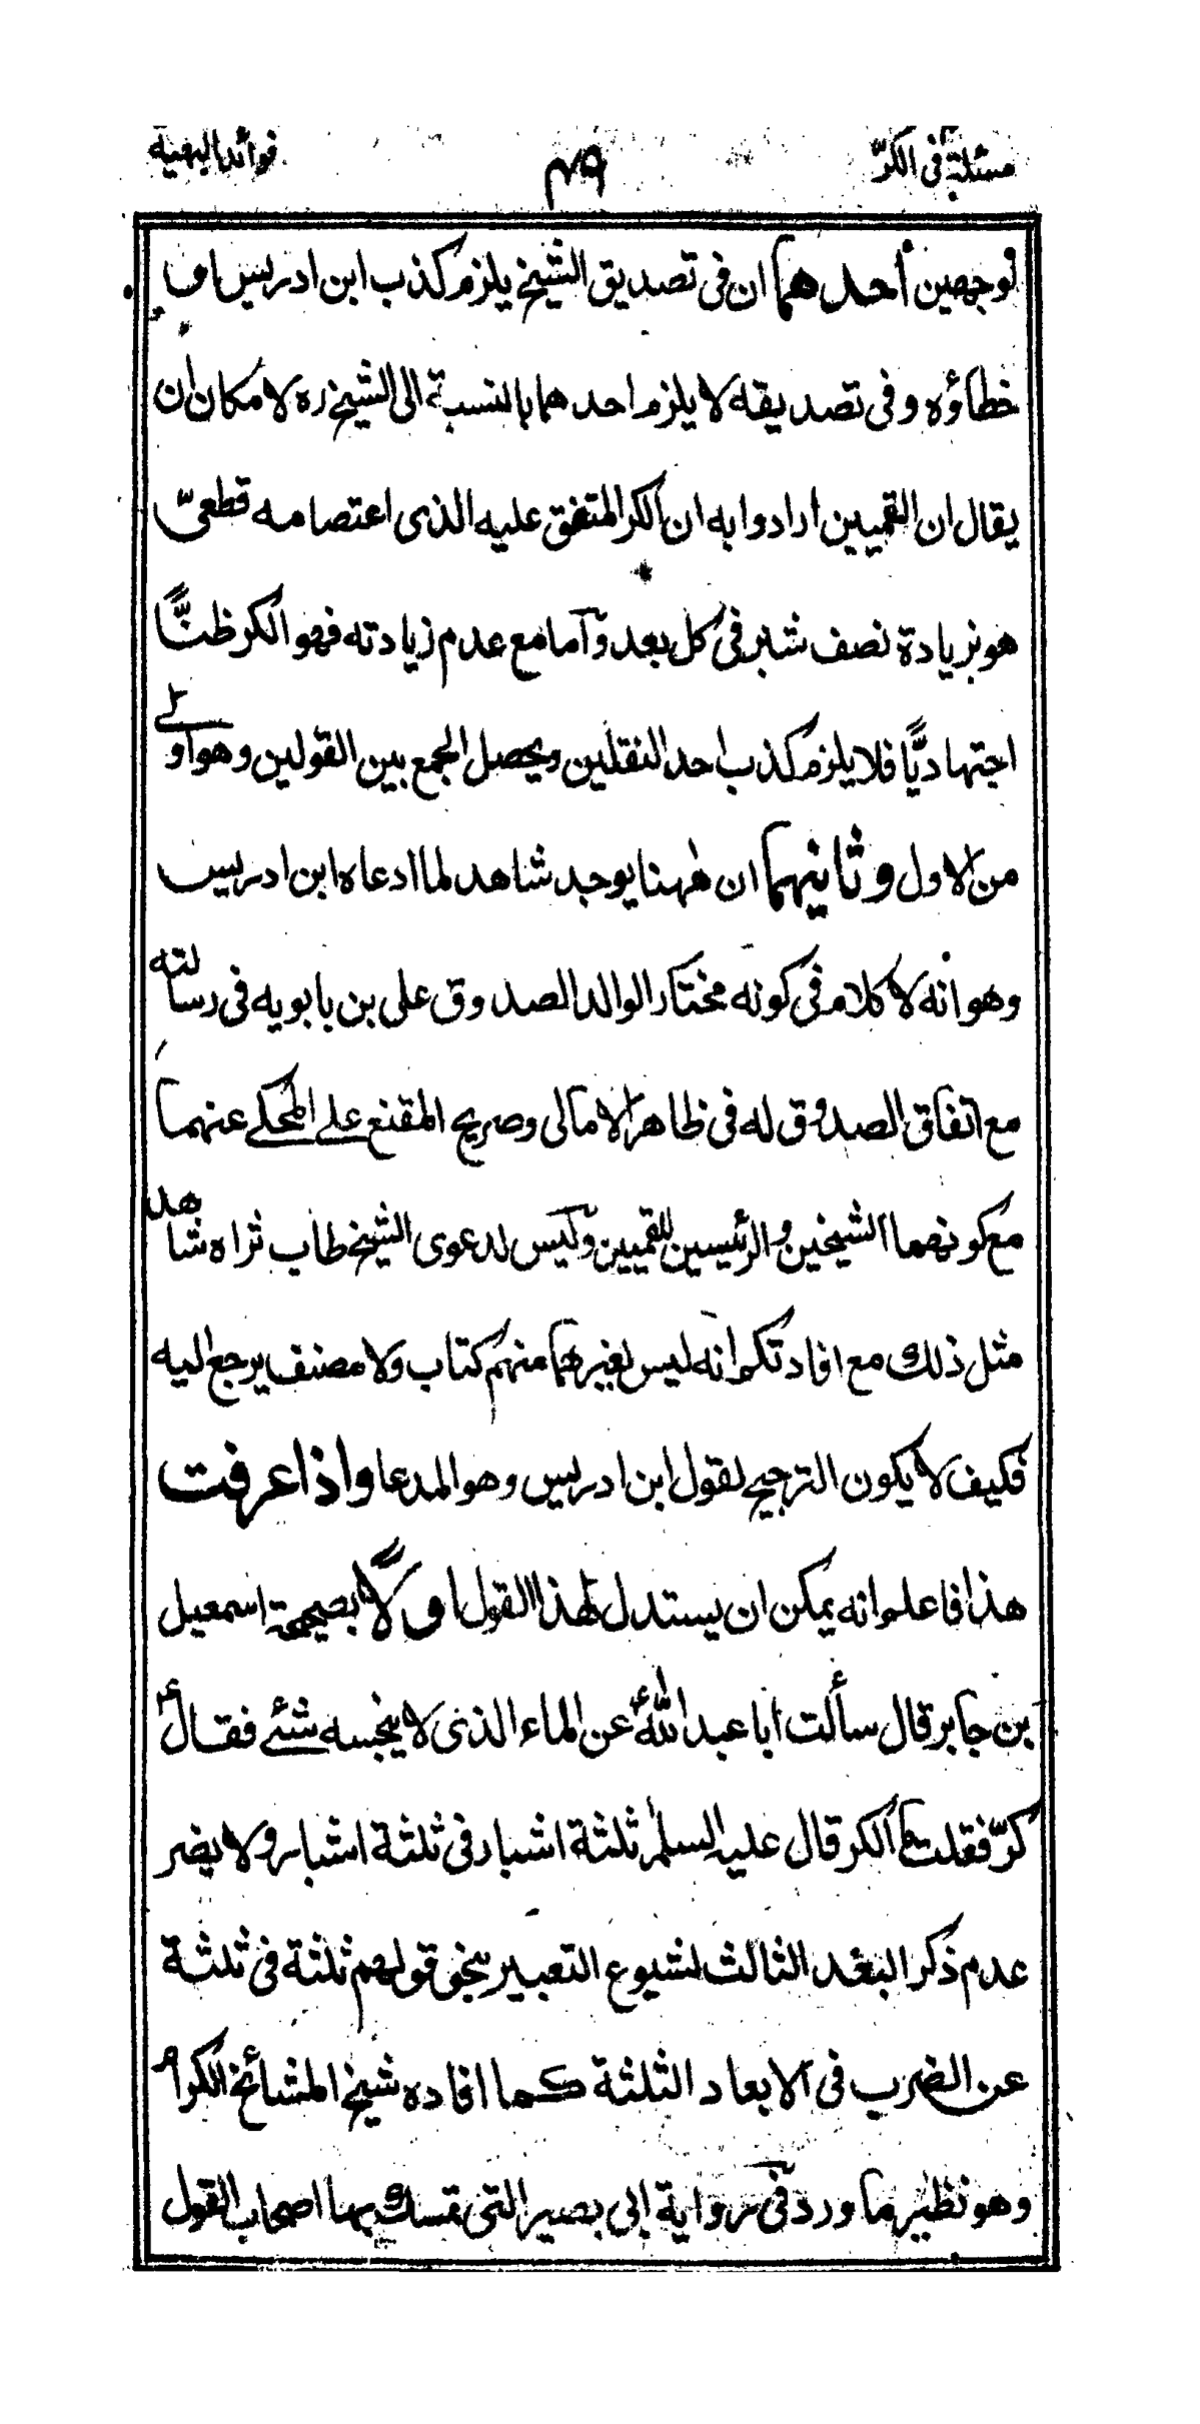 مسئلة فی الکرّ
۴۹
فوائد البهیه
لوجهین أحدهما ان فی تصدیق الشیخ یلزم کذب ابن ادریس او
خطاؤه وفی تصدیقه لا یلزم احدهما بالنسبة الی الشیخ ره لامکان ان
یقال ان القمیین ارادوا به ان الکر المتفق علیه الذی اعتصامه قطعیّ
هو بزیادة نصف شبر فی کل بعد وآما مع عدم زیادته فهو الکر ظنًّا
اجتهادیًّا فلا یلزم کذب احد النقلین ویحصل الجمع بین القولین وهو اولی
من الاول وثانیهما ان ههنا یوجد شاهد لما ادعاه ابن ادریس
وهو انه لا کلام فی کونه مختار الوالد الصدوق علی بن بابویه فی رسالته
مع اتفاق الصدوق له فی ظاهر الامالی وصریح المقنع علی المحکی عنهما
مع کونهما الشیخین والرئیسین للقمیین ولیس لدعوی الشیخ طاب ثراه شاهد
مثل ذلك مع افادتکم انه لیس لغیرهما منهم کتاب ولا مصنف یرجع الیه
فکیف لا یکون الترجیح لقول ابن ادریس وهو المدعا واذا عرفت
هذا فاعلم انه یمکن ان یستدل لهذا القول او لًا بصحیحة اسمعیل
بن جابر قال سألت ابا عبد اللهؑ عن الماء الذی لا ینجسه شئی فقالؑ
کرّ فقلت ما الکر قال علیه السلم ثلثة اشبار فی ثلثة اشبار ولا یضر
عدم ذکر البعد الثالث لشیوع التعبیر بنحو قولهم ثلثة فی ثلثة
عن الضرب فی الابعاد الثلثة کما افاده شیخ المشائخ الکرام
وهو نظیر ما ورد فی روایة ابی بصیر التی تمسك بها اصحاب القول